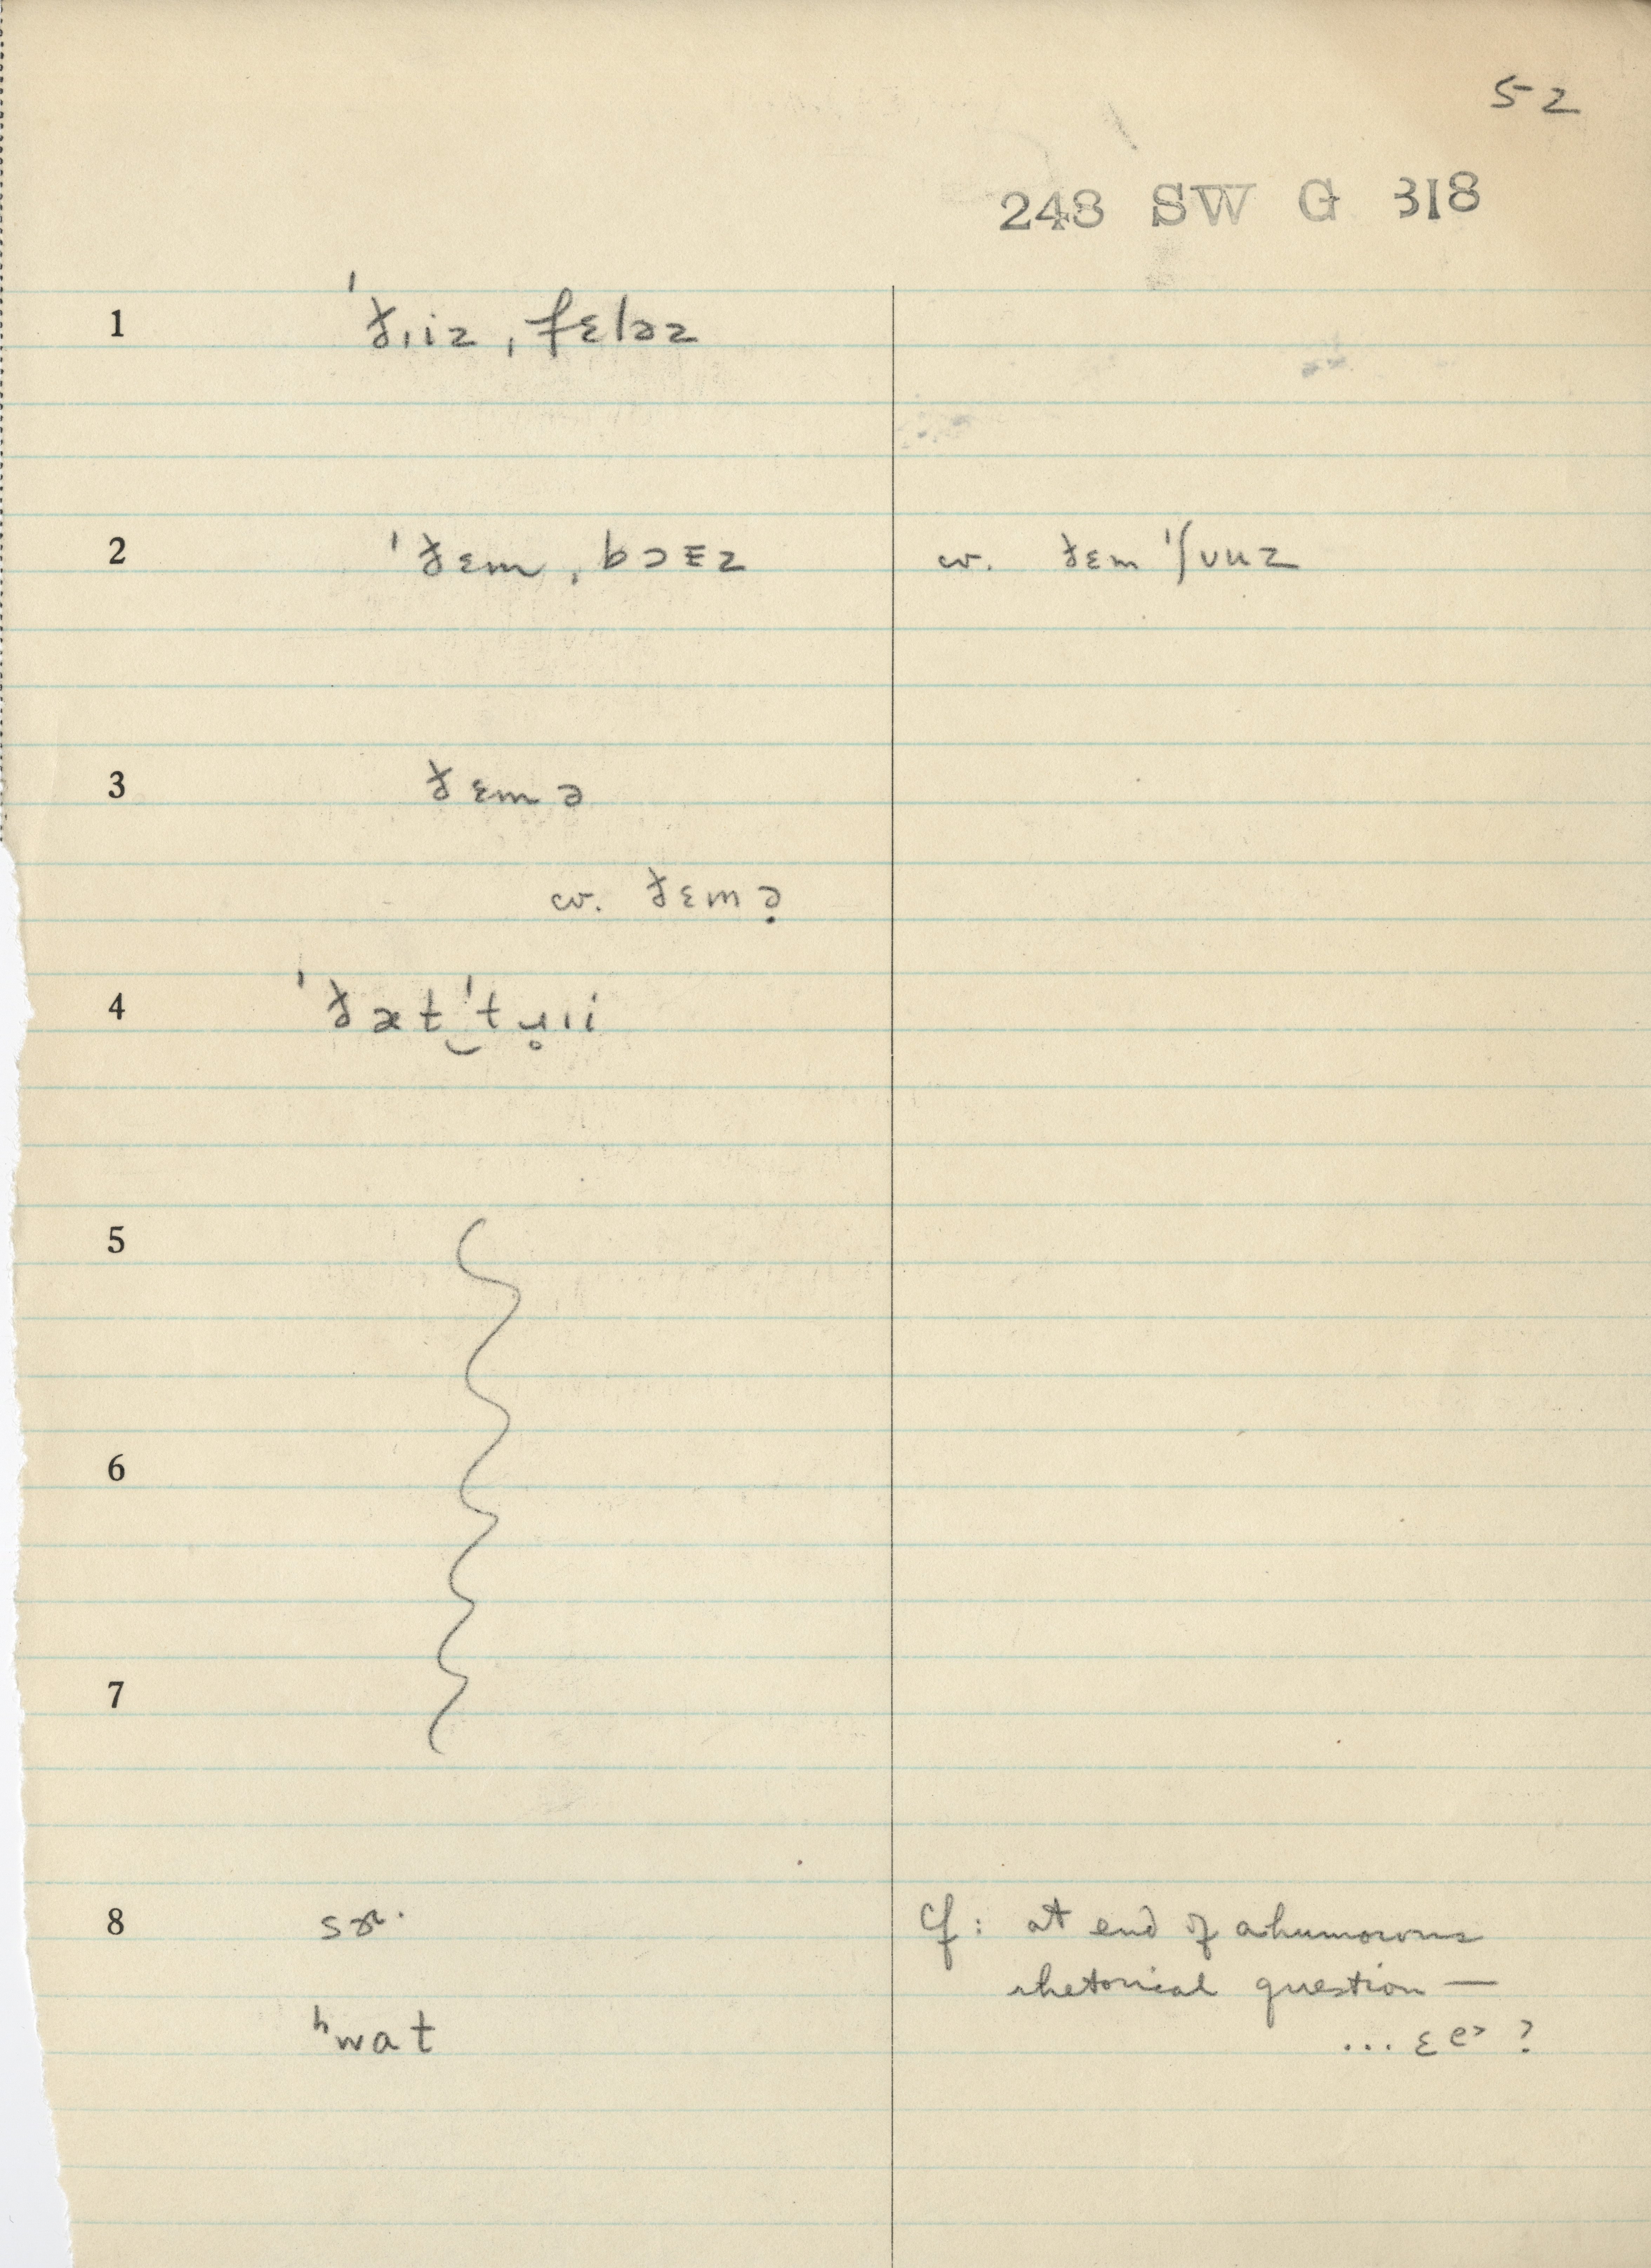 52
248 SW G 318
1 ˈðɪiz ˌfɛləz
2 ˈðɛm ˌbɔᴇz cv. ðɛm ˈʃuuz
3 ðɛm ə
cv. ðɛm ə̣
4 ˈðæt‿ˈtɹ̥ɪi
5
6
7
8 cf: at end of a humorous
rhetorical question —
ʰwat
... ɛe> ?